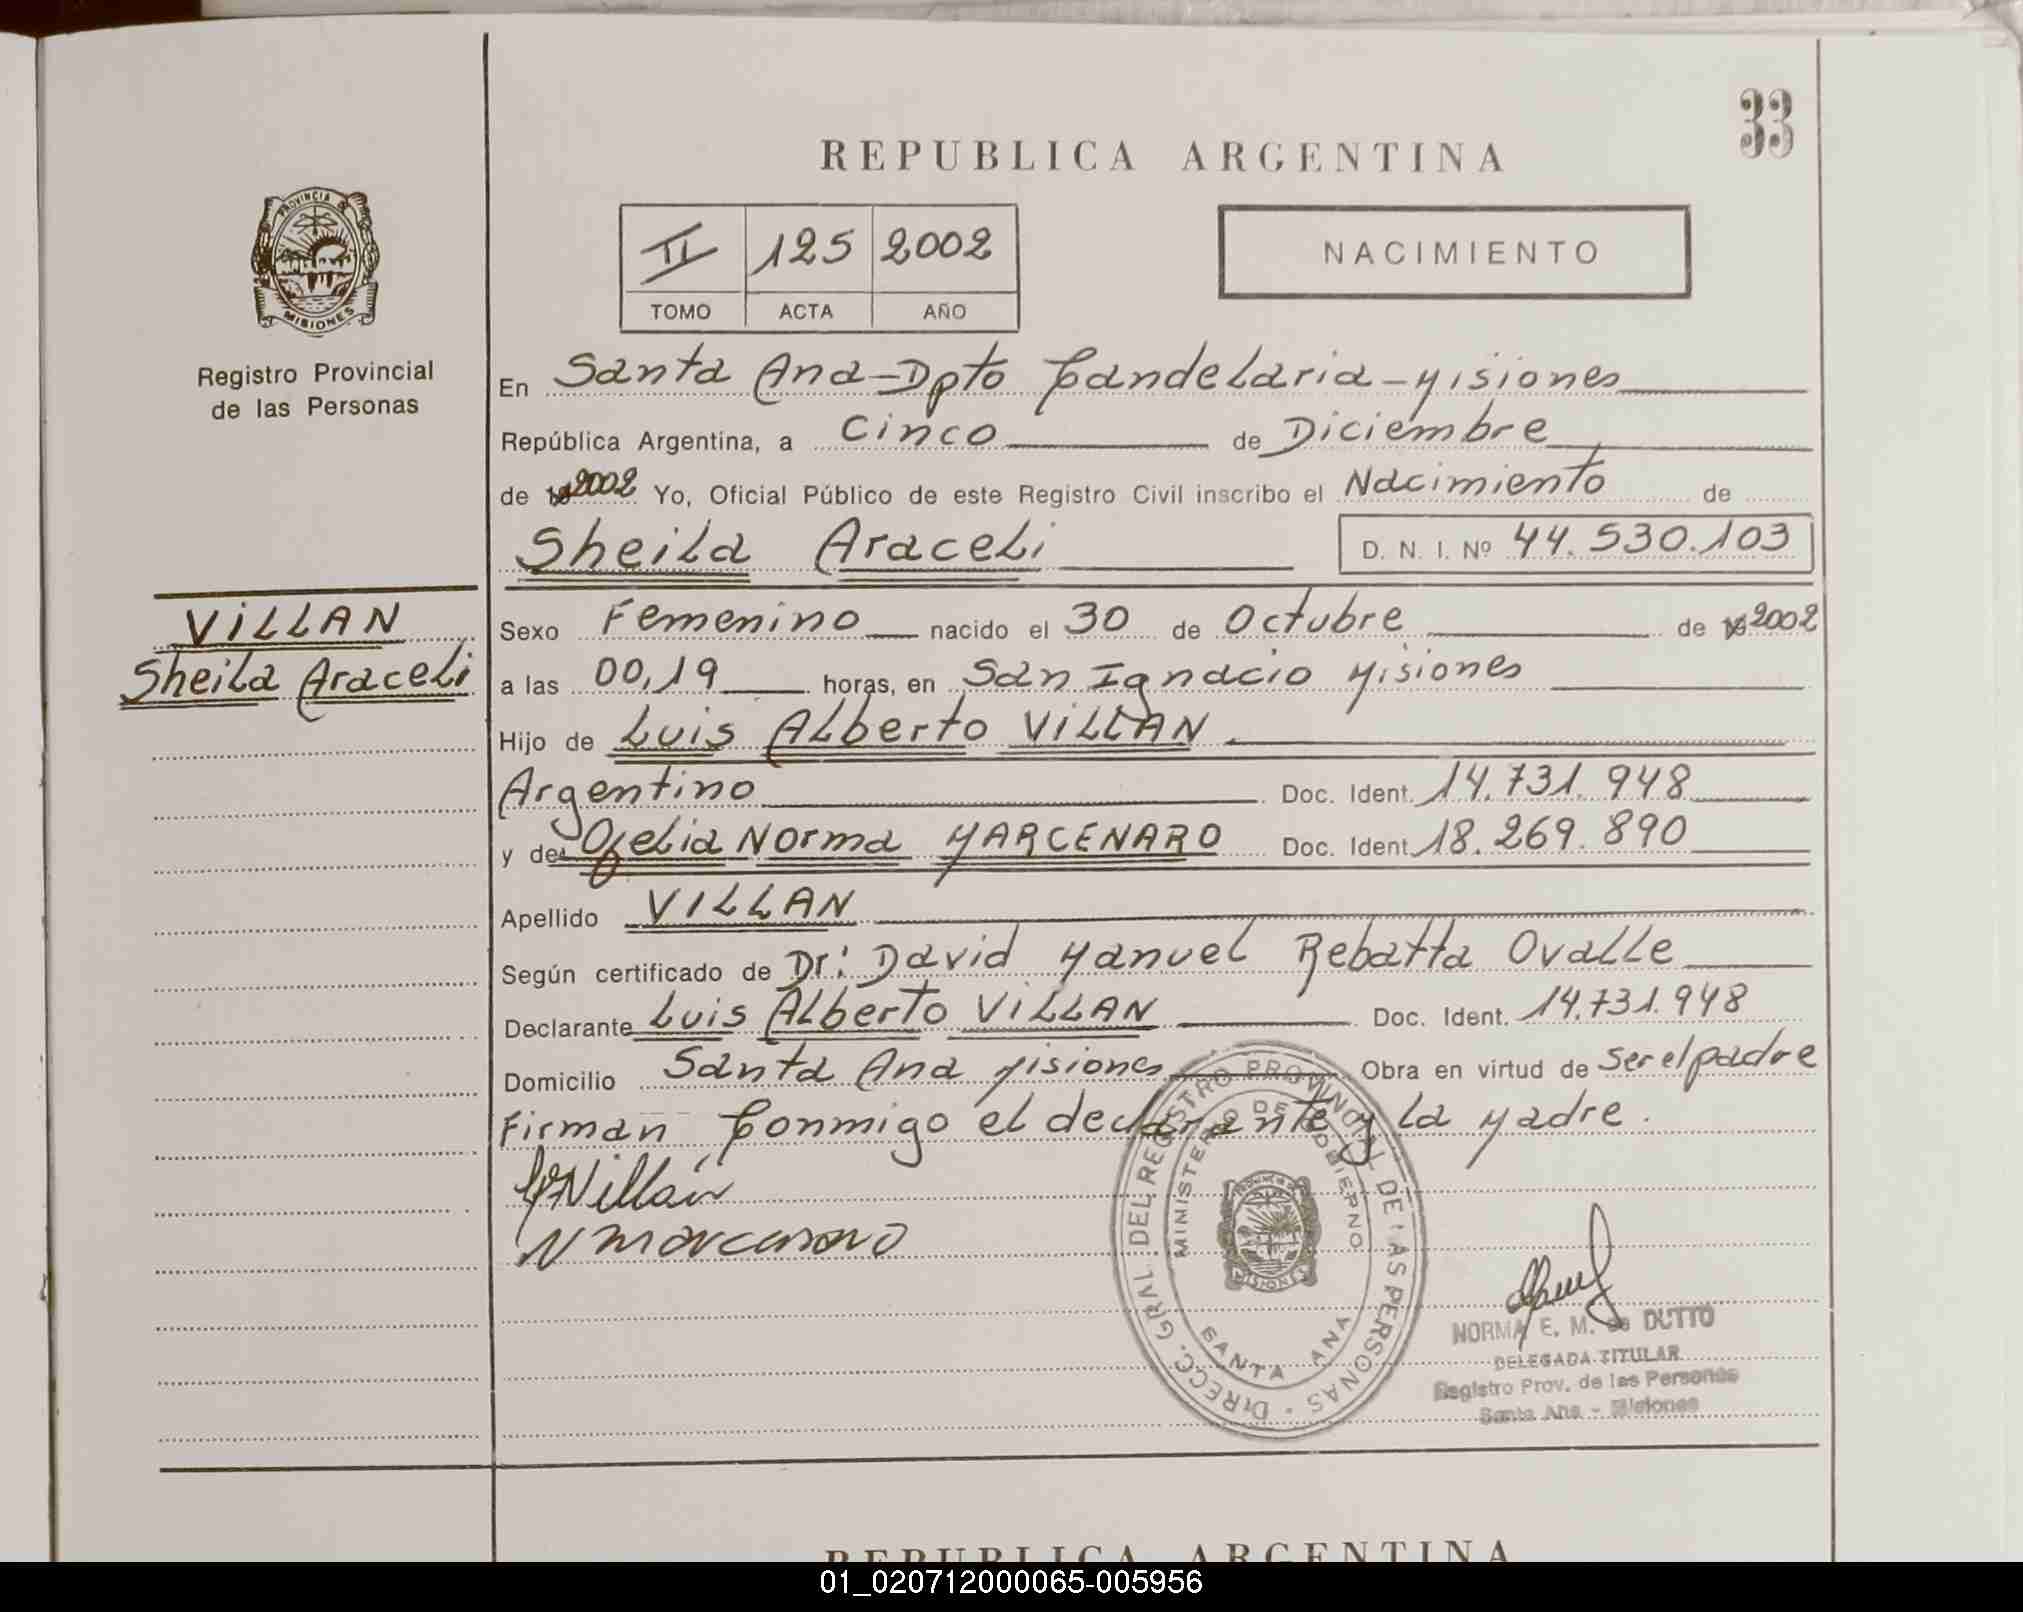 33
REPUBLICA ARGENTINA
PROVINCIA DE
MISIONES
Registro Provincial
de las Personas
II 125 2002
TOMO ACTA AÑO
NACIMIENTO
En Santa Ana-Dpto Candelaria-Misiones
República Argentina, a Cinco de Diciembre
de 2002 Yo, Oficial Público de este Registro Civil inscribo el Nacimiento de
Sheila Araceli D. N. I. Nº 44.530.103
VILLAN
Sheila Araceli
Sexo Femenino nacido el 30 de Octubre de 2002
a las 00,19 horas, en San Ignacio Misiones
Hijo de Luis Alberto VILLAN
Argentino Doc. Ident. 14.731.948
y de Ofelia Norma MARCENARO Doc. Ident 18.269.890
Apellido VILLAN
Según certificado de Dr: David Manuel Rebatta Ovalle
Declarante Luis Alberto VILLAN Doc. Ident. 14.731.948
Domicilio Santa Ana Misiones Obra en virtud de Ser el padre
Firman Conmigo el declarante y la Madre.
Villán
N Marcenaro
DIRECC. GRAL. DEL REGISTRO PROVINCIAL DE LAS PERSONAS
MINISTERIO DE GOBIERNO
MISIONES
SANTA ANA
NORMA E. M. de DUTTO
DELEGADA TITULAR
Registro Prov. de las Personas
Santa Ana - Misiones
REPUBLICA ARGENTINA
01_020712000065-005956